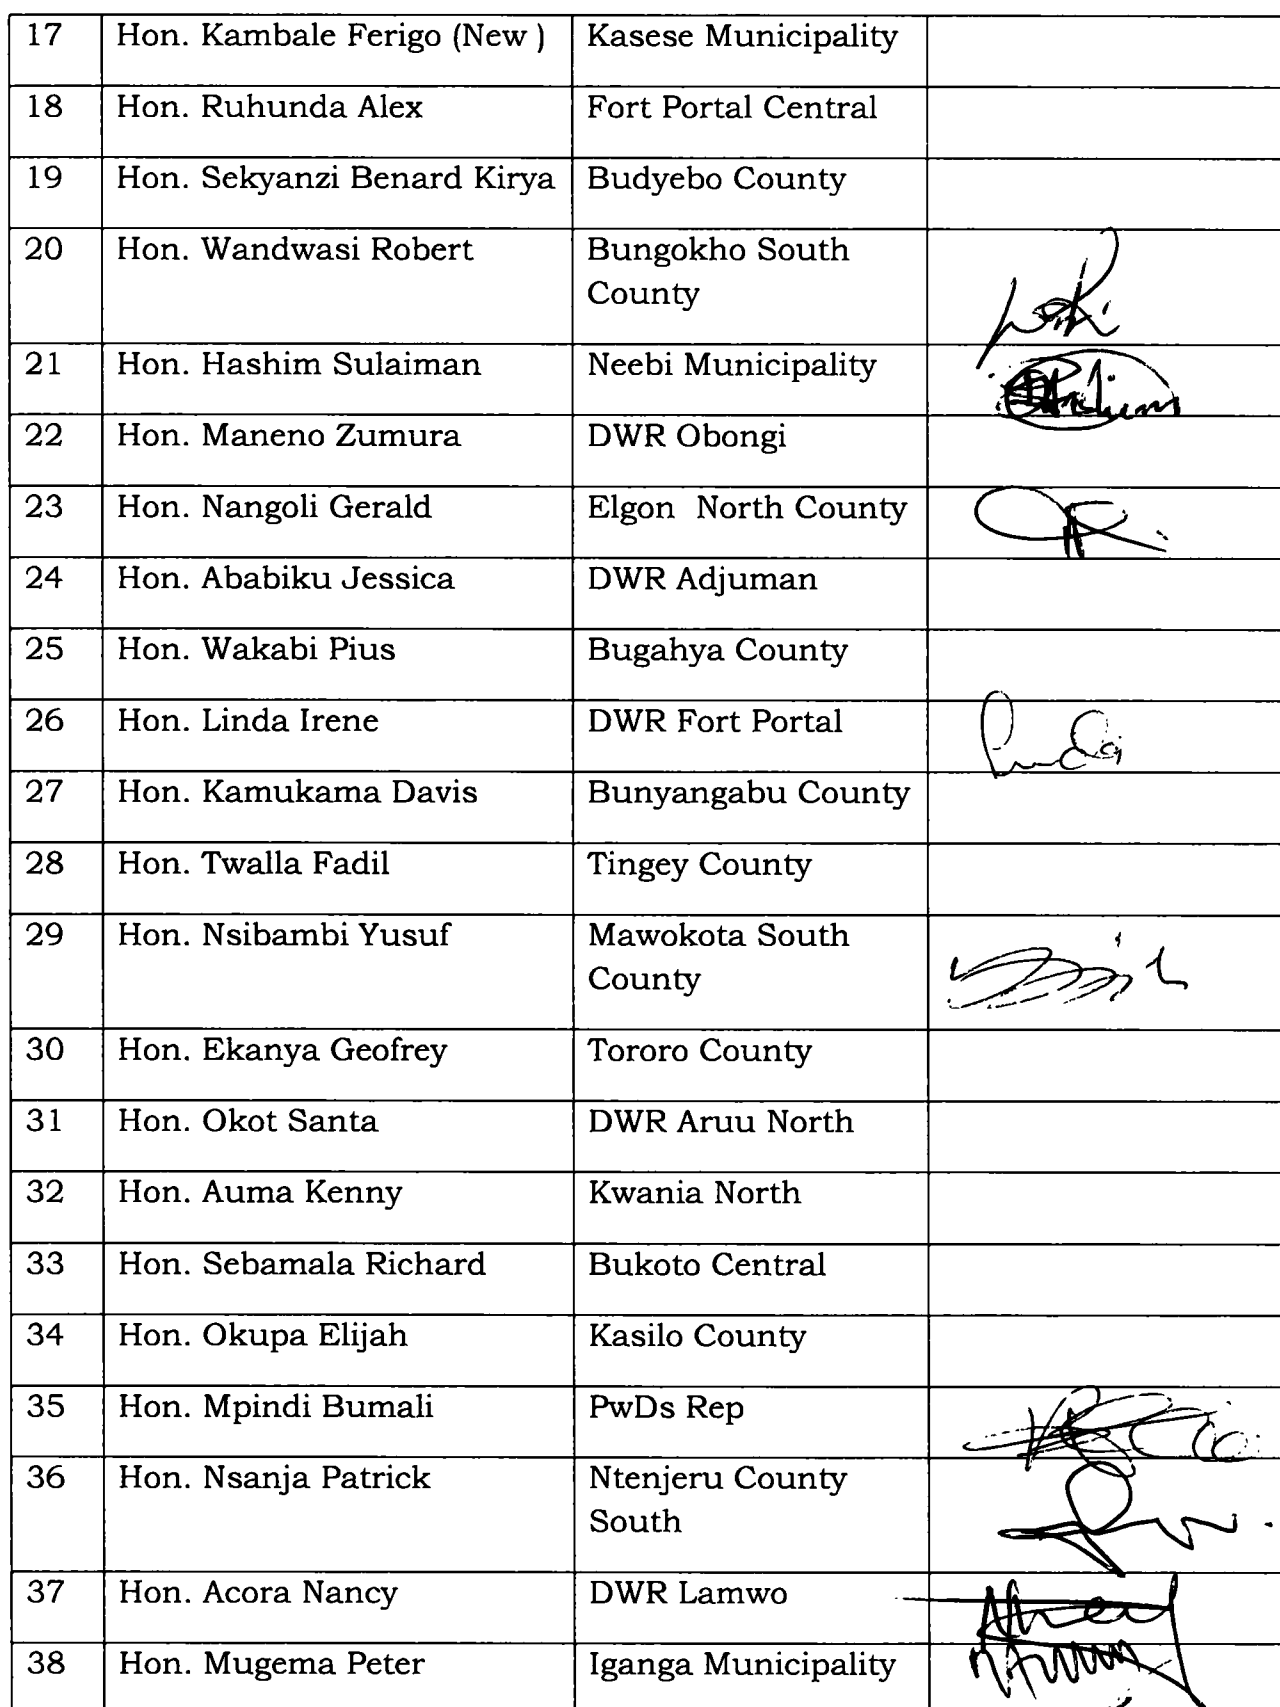 17 Hon. Kambale Ferigo (New ) Kasese Municipality
18 Hon. Ruhunda Alex Fort Portal Central
19 Hon. Sekyanzi Benard Kirya Budyebo County
20 Hon. Wandwasi Robert Bungokho South
County
21 Hon. Hashim Sulaiman Neebi Municipality
22 Hon. Maneno Zumura DWR Obongi
23 Hon. Nangoli Gerald Elgon North County
24 Hon. Ababiku Jessica DWR Adjuman
25 Hon. Wakabi Pius Bugahya County
26 Hon. Linda Irene DWR Fort Portal
27 Hon. Kamukama Davis Bunyangabu County
28 Hon. Twalla Fadil Tingey County
29 Hon. Nsibambi Yusuf Mawokota South
County
30 Hon. Ekanya Geofrey Tororo County
31 Hon. Okot Santa DWR Aruu North
32 Hon. Auma Kenny Kwania North
33 Hon. Sebamala Richard Bukoto Central
34 Hon. Okupa Elijah Kasilo County
35 Hon. Mpindi Bumali PwDs Rep
36 Hon. Nsanja Patrick Ntenjeru County
South
37 Hon. Acora Nancy DWR Lamwo
38 Hon. Mugema Peter Iganga Municipality